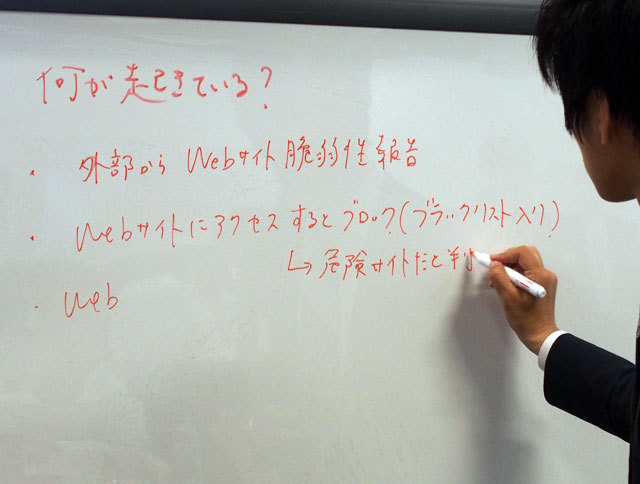 何が起きている?
・外部からWebサイト脆弱性報告
・Webサイトにアクセスするとブロック(ブラックリスト入り)
↳危険サイトだと
・Web